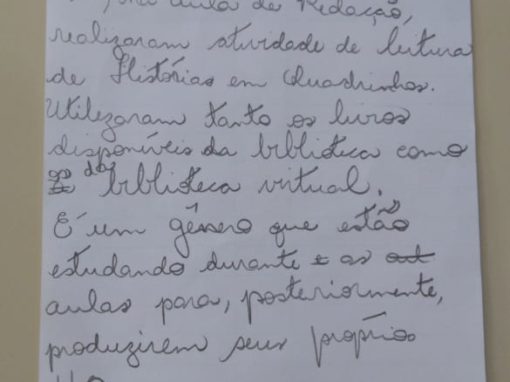 na aula de Redação,
realizaram atividade de leitura
de Histórias em Quadrinhos.
Utilizaram tanto os livros
disponíveis da biblioteca como
da biblioteca virtual.
É um gênero que estão
estudando durante as
aulas para, posteriormente,
produzirem seus próprios